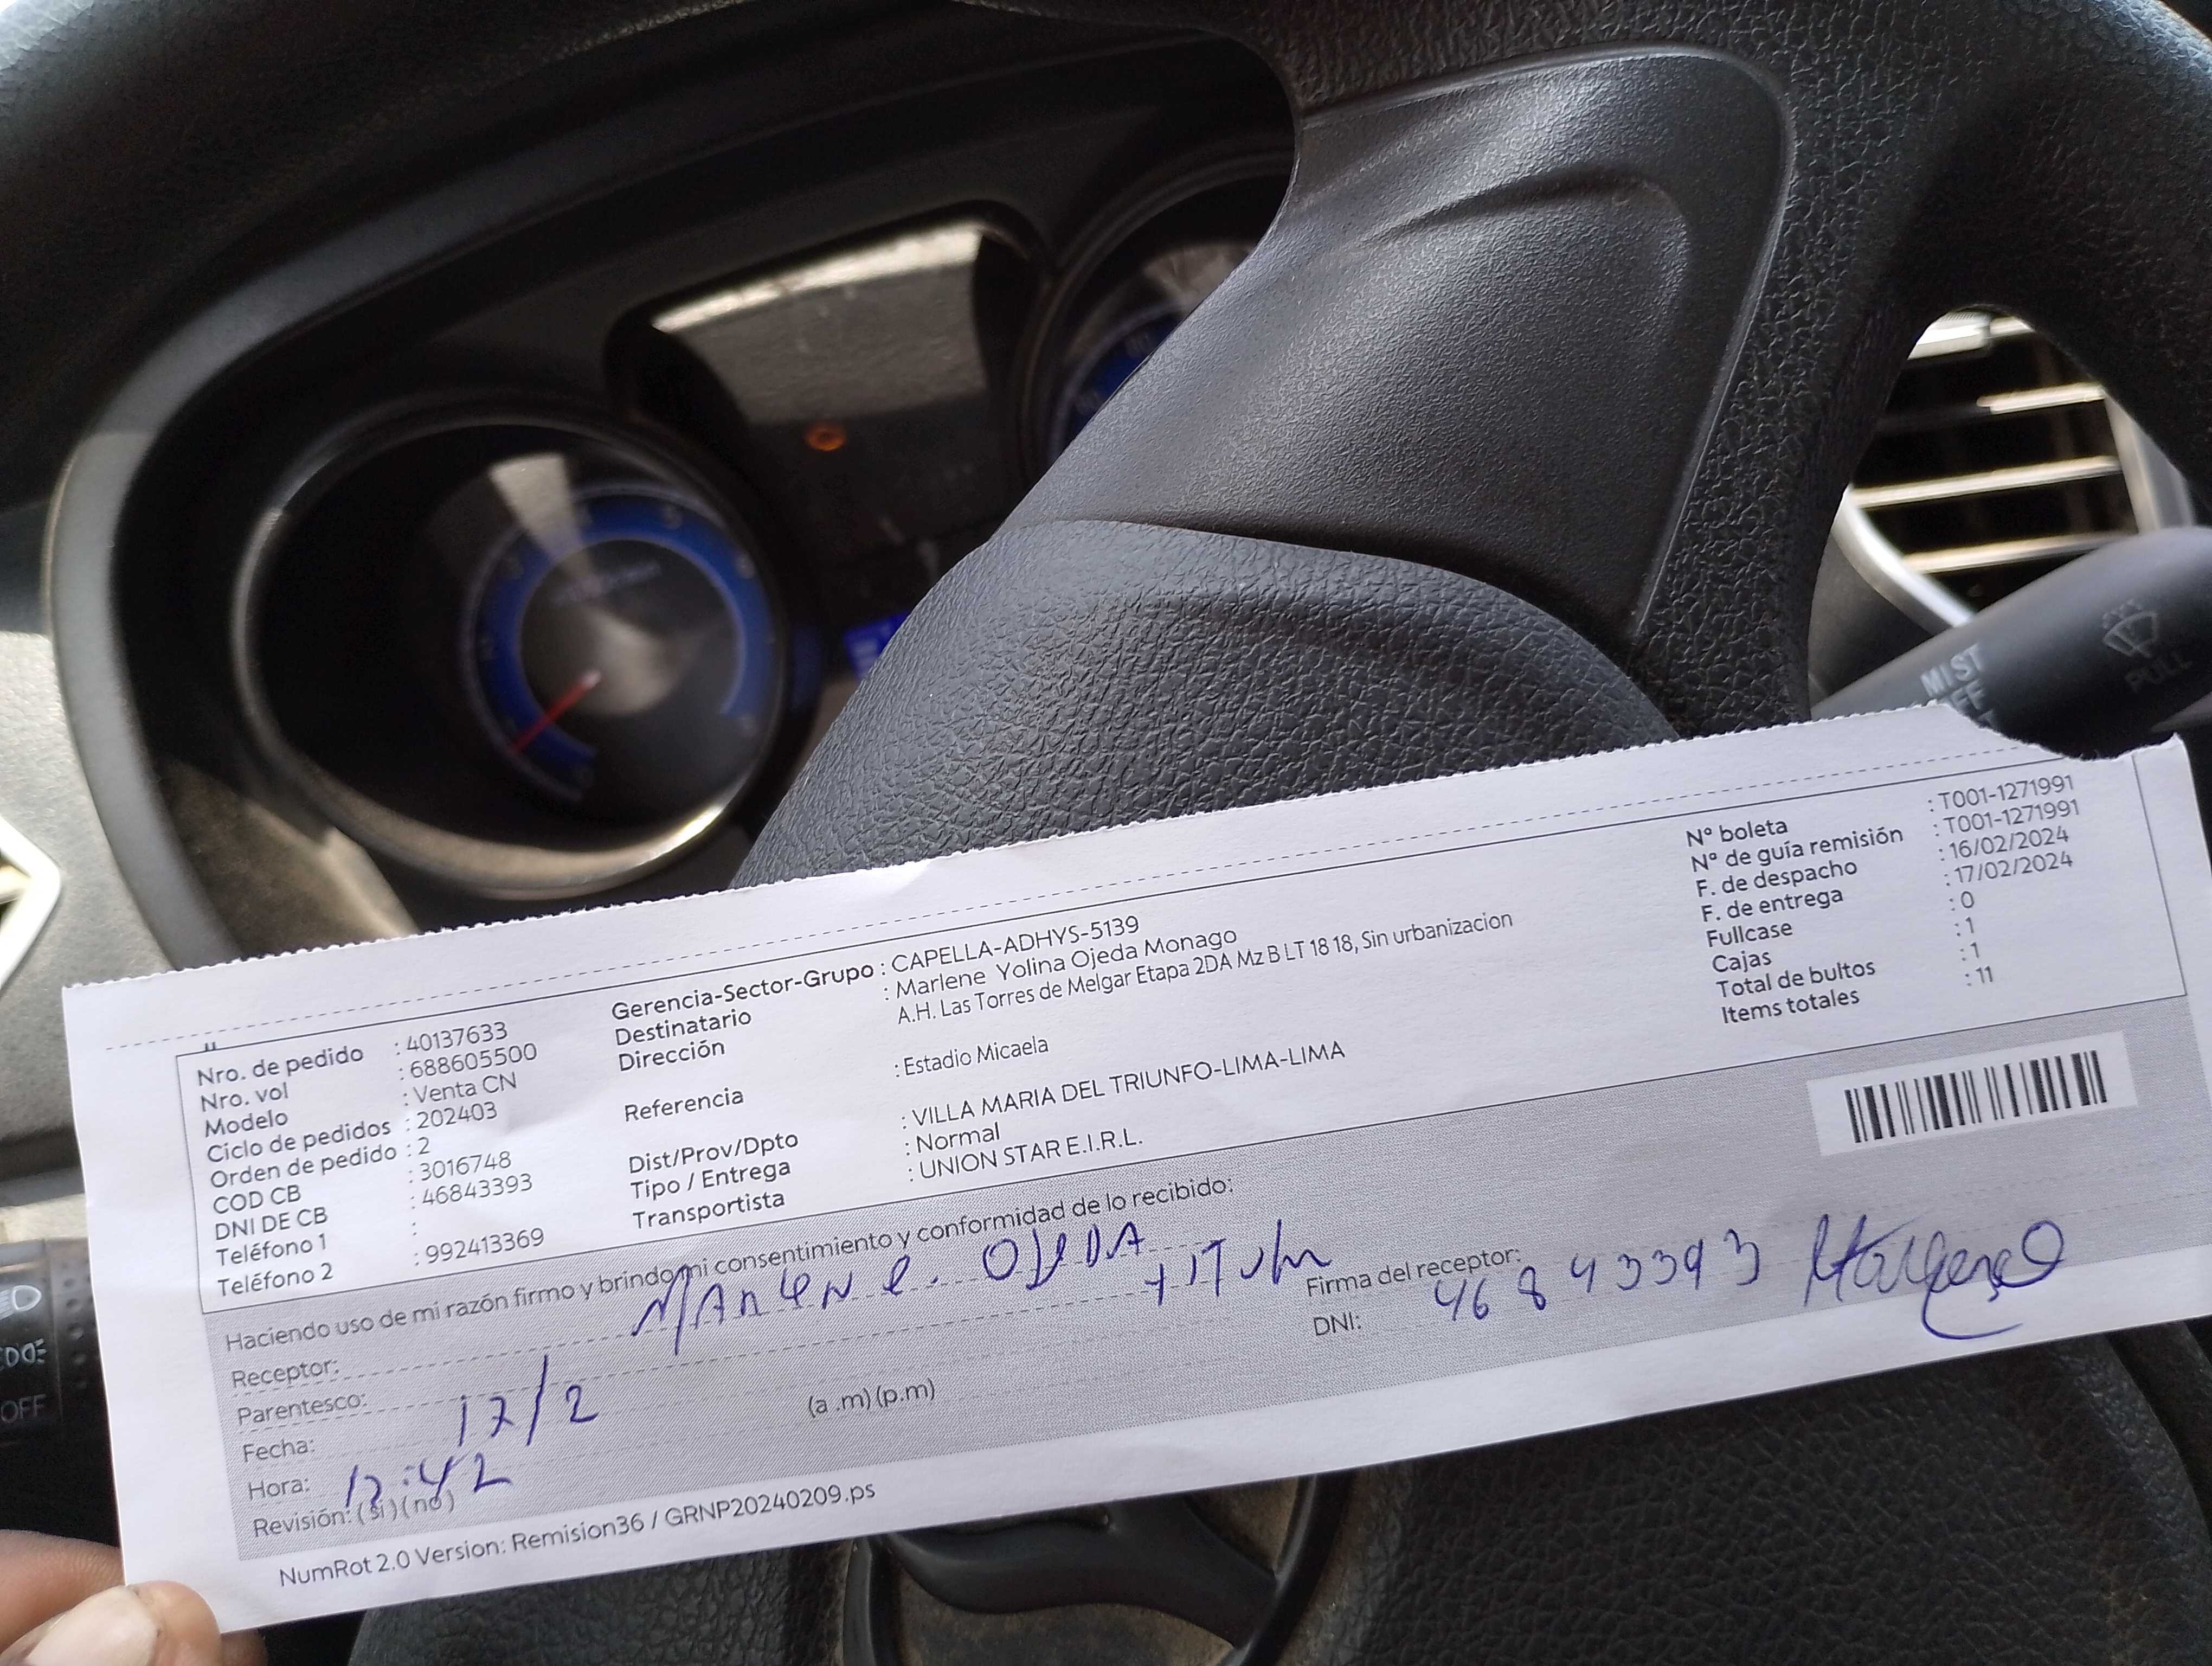 MIST
PULL
OFF
Nro. de pedido : 40137633
Nro. vol : 688605500
Modelo : Venta CN
Ciclo de pedidos : 202403
Orden de pedido : 2
COD CB : 3016748
DNI DE CB : 46843393
Teléfono 1 :
Teléfono 2 : 992413369
Gerencia-Sector-Grupo : CAPELLA-ADHYS-5139
Destinatario : Marlene Yolina Ojeda Monago
Dirección A.H. Las Torres de Melgar Etapa 2DA Mz B LT 18 18, Sin urbanizacion
Referencia : Estadio Micaela
Dist/Prov/Dpto : VILLA MARIA DEL TRIUNFO-LIMA-LIMA
Tipo / Entrega : Normal
Transportista : UNION STAR E.I.R.L.
N° boleta : T001-1271991
N° de guía remisión : T001-1271991
F. de despacho : 16/02/2024
F. de entrega : 17/02/2024
Fullcase : 0
Cajas : 1
Total de bultos : 1
Items totales : 11
Haciendo uso de mi razón firmo y brindo mi consentimiento y conformidad de lo recibido:
Receptor: MARLENE. OJEDA
Parentesco:
Fecha: 17/2
Hora: 12:42 (a .m) (p.m)
Revisión: (si) (no)
Firma del receptor:
DNI: 46843393
NumRot 2.0 Version: Remision36 / GRNP20240209.ps